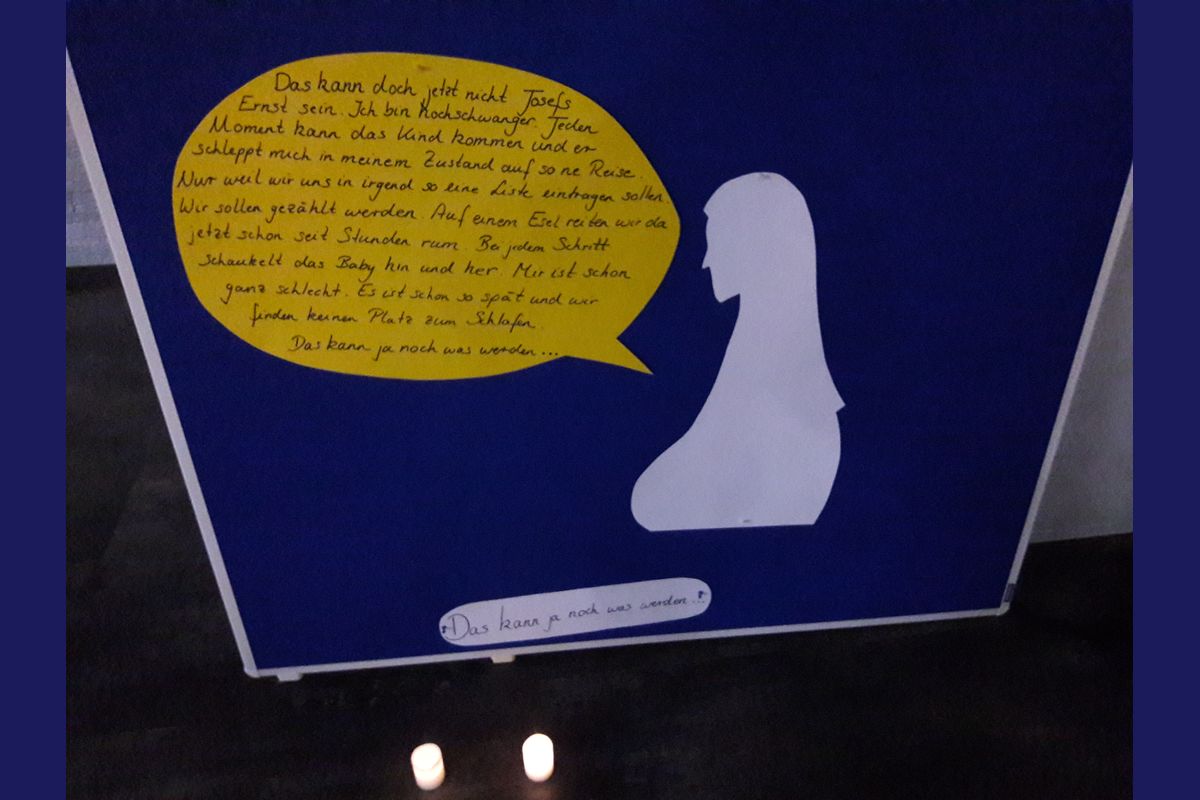 Das kann doch jetzt nicht Josefs
Ernst sein. Ich bin hochschwanger. Jeden
Moment kann das Kind kommen und er
schleppt mich in meinem Zustand auf so ne Reise.
Nur weil wir uns in irgend so eine Liste eintragen sollen.
Wir sollen gezählt werden. Auf einem Esel reiten wir da
jetzt schon seit Stunden rum. Bei jedem Schritt
schaukelt das Baby hin und her. Mir ist schon
ganz schlecht. Es ist schon so spät und wir
finden keinen Platz zum Schlafen.
Das kann ja noch was werden...
Das kann ja noch was werden..."